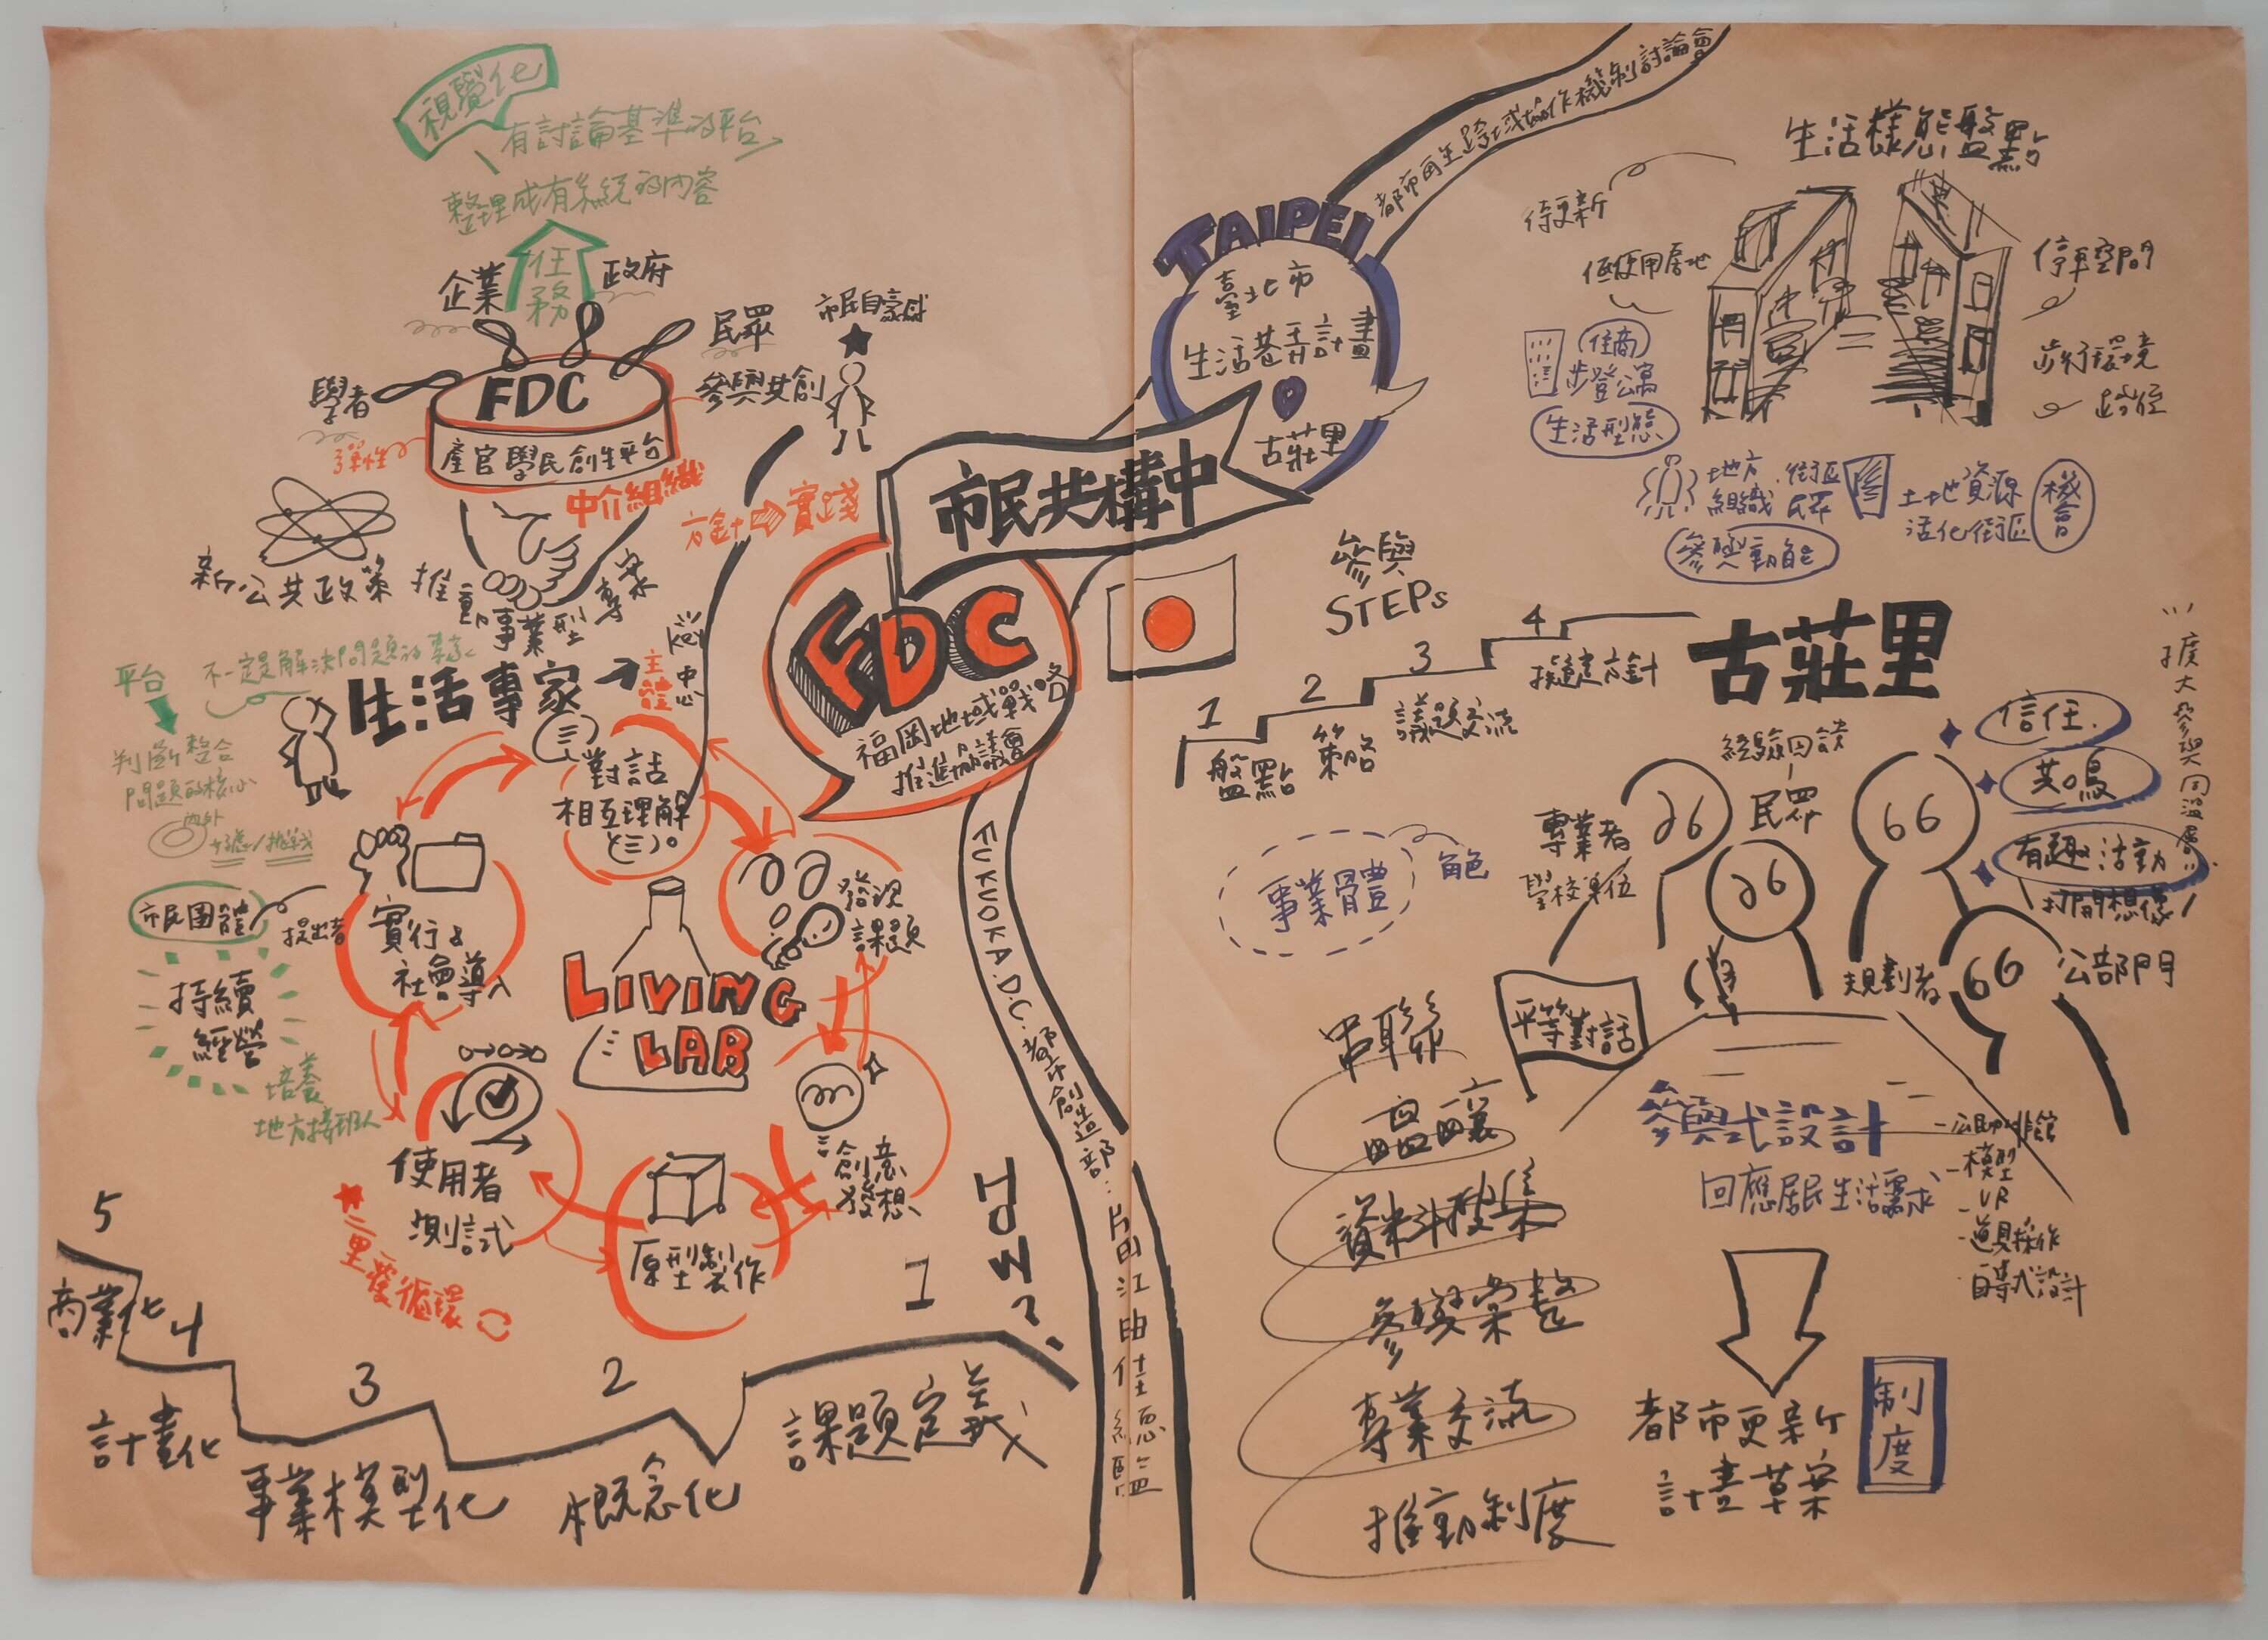 視覺化
有討論基準的平台
整理成有系統的內容
任務
企業
政府
民眾
學者
參與共創
市民自豪感
FDC
產官學民創生平台
彈性
中介組織
方針
實踐
新公共政策
推動事業型專案
平台
不一定是解決問題的專家
生活專家
主體
key
中心
判斷整合
問題的核心
內外
市民團體
提出者
持續
經營
培養
地方接班人
對話
相互理解
發現
課題
創意
發想
原型製作
使用者
測試
實行&
社會導入
LIVING
LAB
二重循環
HOW?
1
課題定義
2
概念化
3
事業模型化
4
計畫化
5
商業化
都市再生跨域協作機制討論會
TAIPEI
臺北市
生活巷弄計畫
古莊里
市民共構中
FDC
福岡地域戰略
推進協議會
FUKUOKA.D.C.都市創造部：片田江由佳總監
生活樣態盤點
待更新
低使用房地
停車空間
步行環境
路型
住商
步登公寓
生活型態
地方
組織
街區
民眾
參與動能
土地資源
活化街區
機會
參與
STEPs
1
盤點
2
策略
3
議題交流
4
擬定方針
古莊里
經驗回饋
專業者
學校單位
民眾
規劃者
公部門
信任
共鳴
有趣活動
打開想像
擴大參與同溫層
事業體
角色
平等對話
參與式設計
回應居民生活需求
-模型
-VR
-道具操作
都市更新
計畫草案
制度
串聯
醞釀
資料搜集
參與案整
專業交流
推動制度